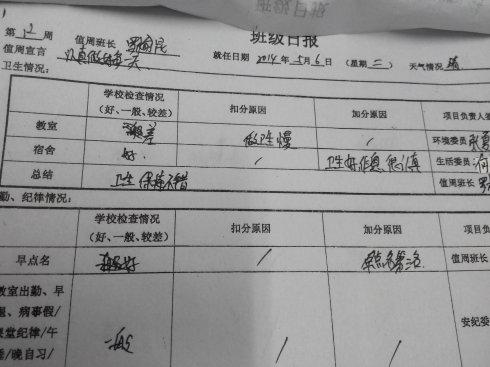 班级日报
第 12 周 值周班长
值周宣言 认真做好每一天 就任日期 2014 年 5月 6 日 (星期 二) 天气情况 晴
卫生情况:
学校检查情况 (好、一般、较差) 扣分原因 加分原因 项目负责人签
教室 较差 做卫生慢 / 环境委员
宿舍 好. / 生活委员:
总结 卫生保持不错 值周班长
勤、纪律情况:
学校检查情况 (好、一般、较差) 扣分原因 加分原因 项目负
早点名 / 值周班长
教室出勤、早
退、病事假/
课堂纪律/午 一般 / / 安纪委
睡/晚自习/